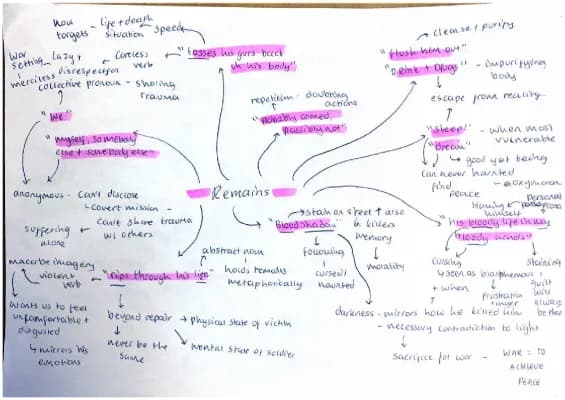 how targets
- life + death situation
speed
"tosses his guts back
on his body"
careless verb
lazy +
disrespectful
war
setting -
merciless
collective pronoun - sharing
trauma
"We"
"myself, somebody
else + somebody else"
anonymous - Can't disclose
- covert mission -
Can't share trauma
w/ others
suffering
alone
macabre imagery
violent
verb
"rips through his life"
abstract noun
holds remains
metaphorically
wants us to feel
uncomfortable +
disgusted
↳ mirrors his
emotions
beyond repair → physical state of victim
never be the
same
mental state of soldier
Remains
repetition - doubting
actions
"probably armed,
possibly not"
cleanse + purify
"flush him out"
"Drink + Drugs" - impurifying
body
escape from reality
"sleep" - when most
vulnerable
"Dream"
↳ good yet being
haunted
↳ oxymoron
can never
find
peace
"blood shadow"
→ stain on street ↑ also
in killers
memory
morality
following
cursed/
haunted
blaming
himself
personal
"his bloody life in my
bloody hands"
cursing
↳ seen as blasphemous
+ when
frustration
+ anger
staining
guilt
will
always
be there
darkness - mirrors how he killed him
- necessary contradiction to light
sacrifice for war - WAR = TO
ACHIEVE
PEACE